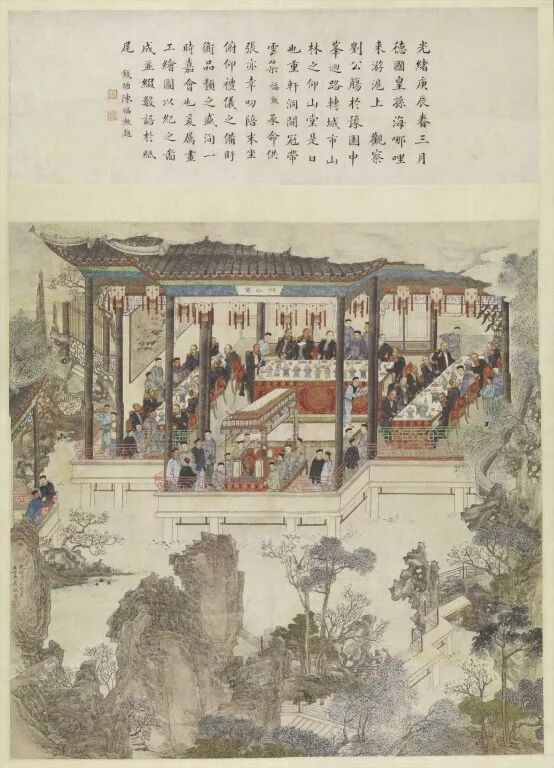 光緒庚辰春三月
德國皇孫海哪哩
來游滬上 觀察
劉公觴於豫園中
峯迴路轉城市山
林之仰山堂是日
也重軒洞開冠帶
雲 福勲承命供
張亦幸叨陪末坐
俯仰禮儀之備盱
衡品類之盛洵一
時嘉會也爰屬畫
工繪圖以紀之啚
成並綴數語於紙
尾
錢塘陳福勲題
仰山堂